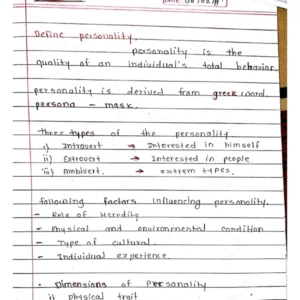 Define personality.
personality is the
quality of an individual's total behavior.
personality is derived from greek word
persona - mask.
Three types of the personality.
i) Introvert → Interested in himself
ii) Extrovert → Interested in people
iii) Ambivert. → extrem types.
following factors influencing personality.
- Role of Heredity
- Physical and environmental condition
- Type of cultural.
- Individual experience.
- Dimensions of Personality
i) physical trait